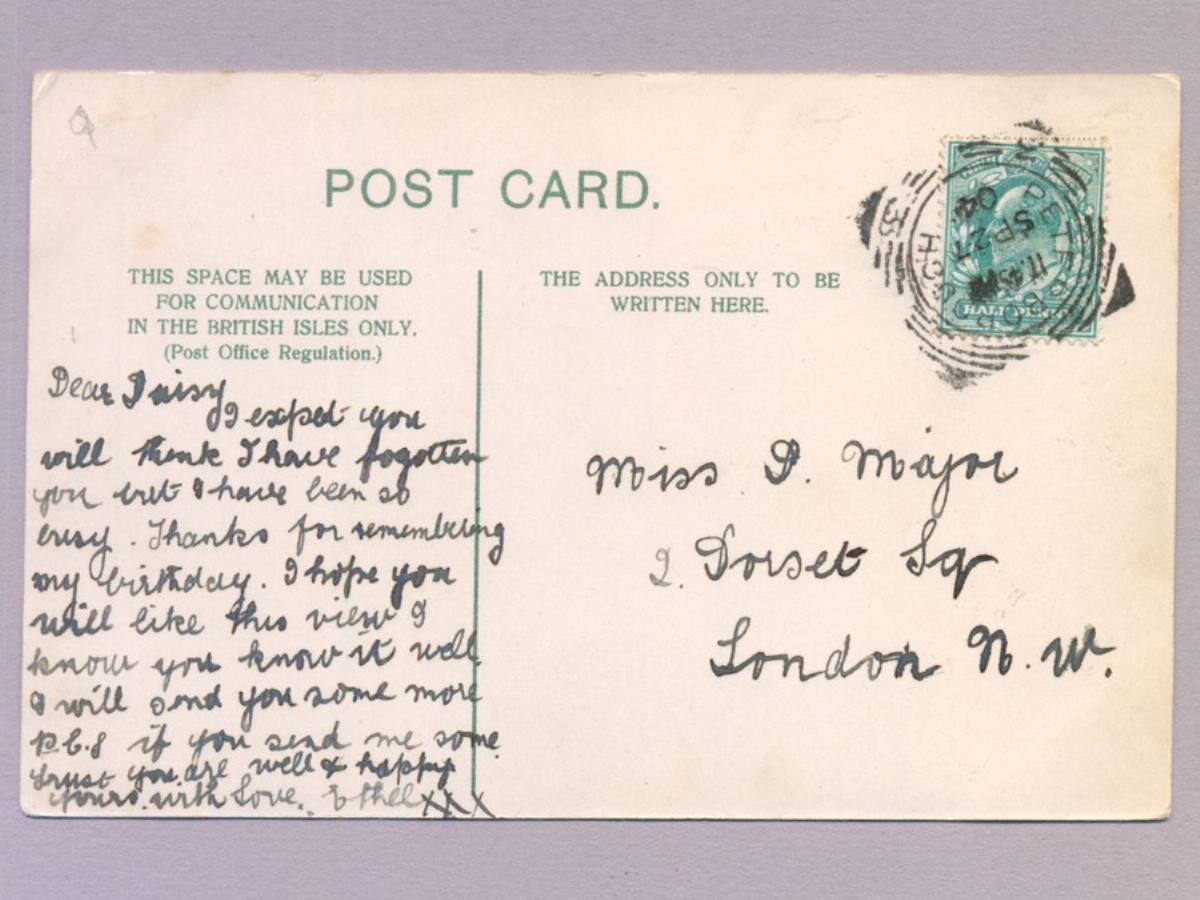 POST CARD.
THIS SPACE MAY BE USED
FOR COMMUNICATION
IN THE BRITISH ISLES ONLY.
(Post Office Regulation.)
THE ADDRESS ONLY TO BE
WRITTEN HERE.
Dear Daisy
I expect you
will think I have fogotten
you but I have been so
busy. Thanks for remembering
my birthday. I hope you
will like this view I
know you know it well.
I will send you some more
P.C.s if you send me some
trust you are well & happy
yours with Love. Ethel XXX
Miss D. Major
2. Dorset Sq
London N.W.
SP 27
04
HALF PENNY